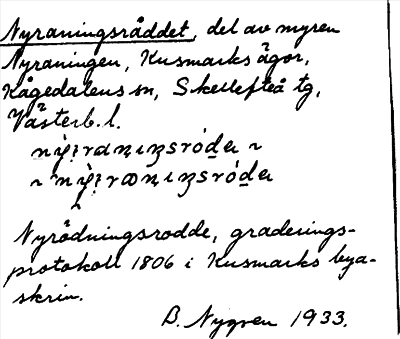 Nyraningsråddet, del av myren
Nyraningen, Kusmarks ägor,
Kågedalens sn, Skellefteå tg,
Västerb. l.
Nyrödningsrodde, graderings-
protokoll 1806 i Kusmarks bya-
skrin.
B. Nygren 1933.